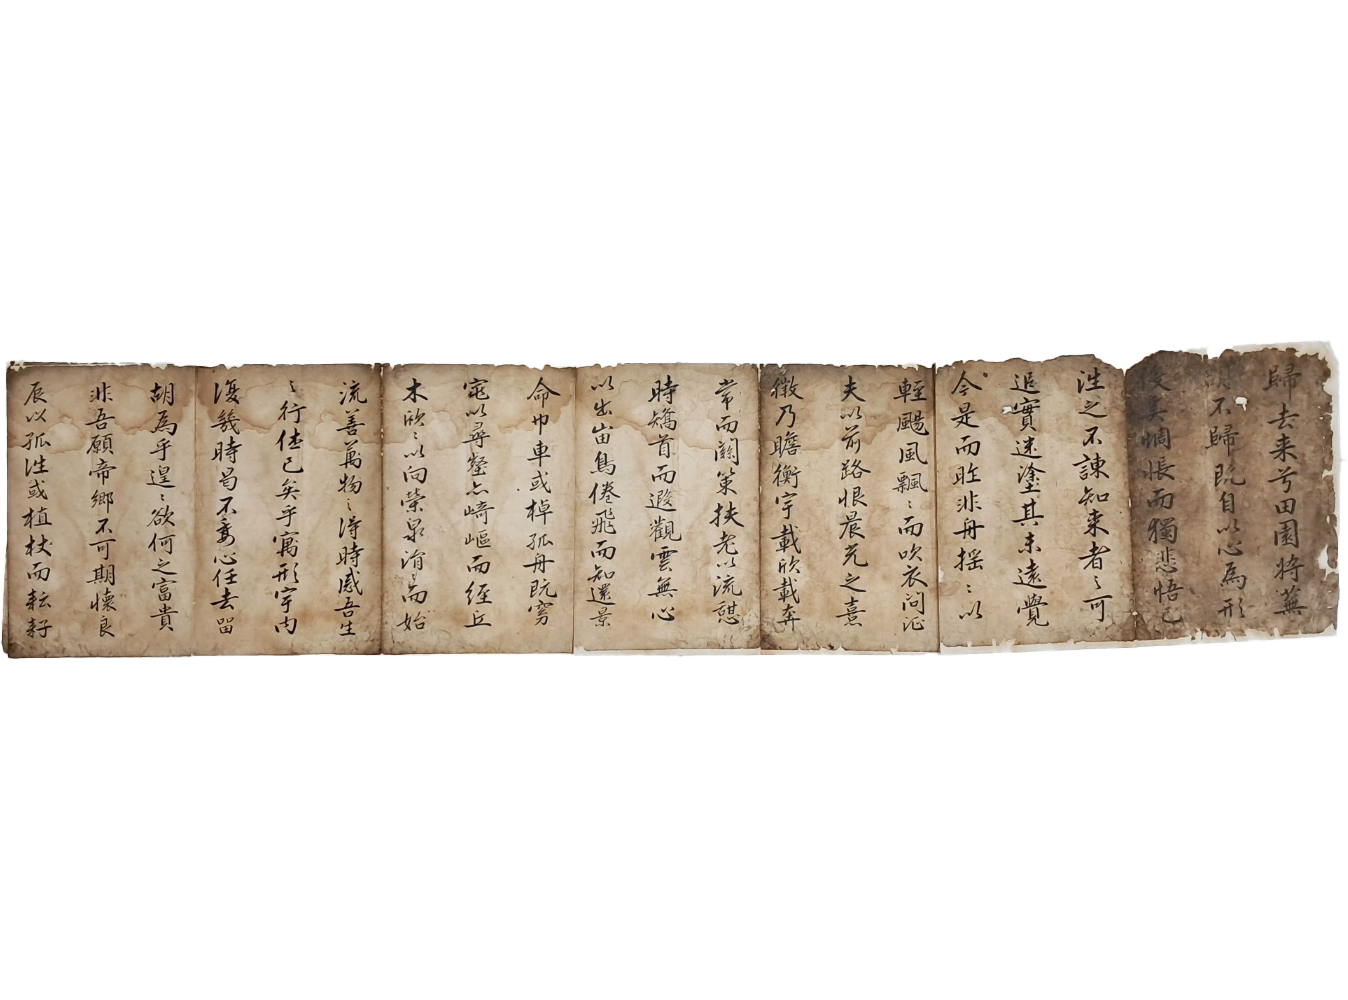 歸去来兮田園将蕪
胡不歸既自以心為形
役奚惆悵而獨悲悟已
往之不諫知来者〻可
追實迷塗其未遠覺
今是而昨非舟揺〻以
輕颺風飄〻而吹衣问征
夫以前路恨晨光之熹
微乃瞻衡宇載欣載奔
常而關策扶老以流憩
時矯首而遐觀雲無心
以出岫鳥倦飛而知還景
命巾車或棹孤舟既窈
窕以尋壑亦崎嶇而經丘
木欣〻以向榮泉涓〻而始
流善萬物〻得時感吾生
〻行休已矣乎寓形宇内
復幾時曷不委心任去留
胡為乎遑〻欲何之富貴
非吾願帝鄉不可期懷良
辰以孤往或植杖而耘耔